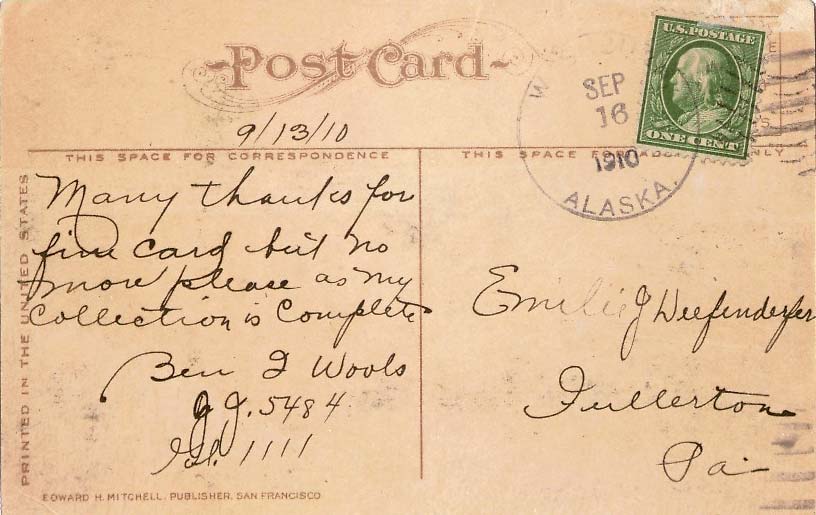 Post Card
U.S. POSTAGE
ONE CENT
SEP
16
1910
ALASKA.
9/13/10
THIS SPACE FOR CORRESPONDENCE
Many thanks for
fine card but no
more please as my
Collection is Complete
Ben J Wools
J.J. 5484
1111
Emilie J Deefenderfer
Fullerton
Pa
PRINTED IN THE UNITED STATES
EDWARD H. MITCHELL, PUBLISHER, SAN FRANCISCO